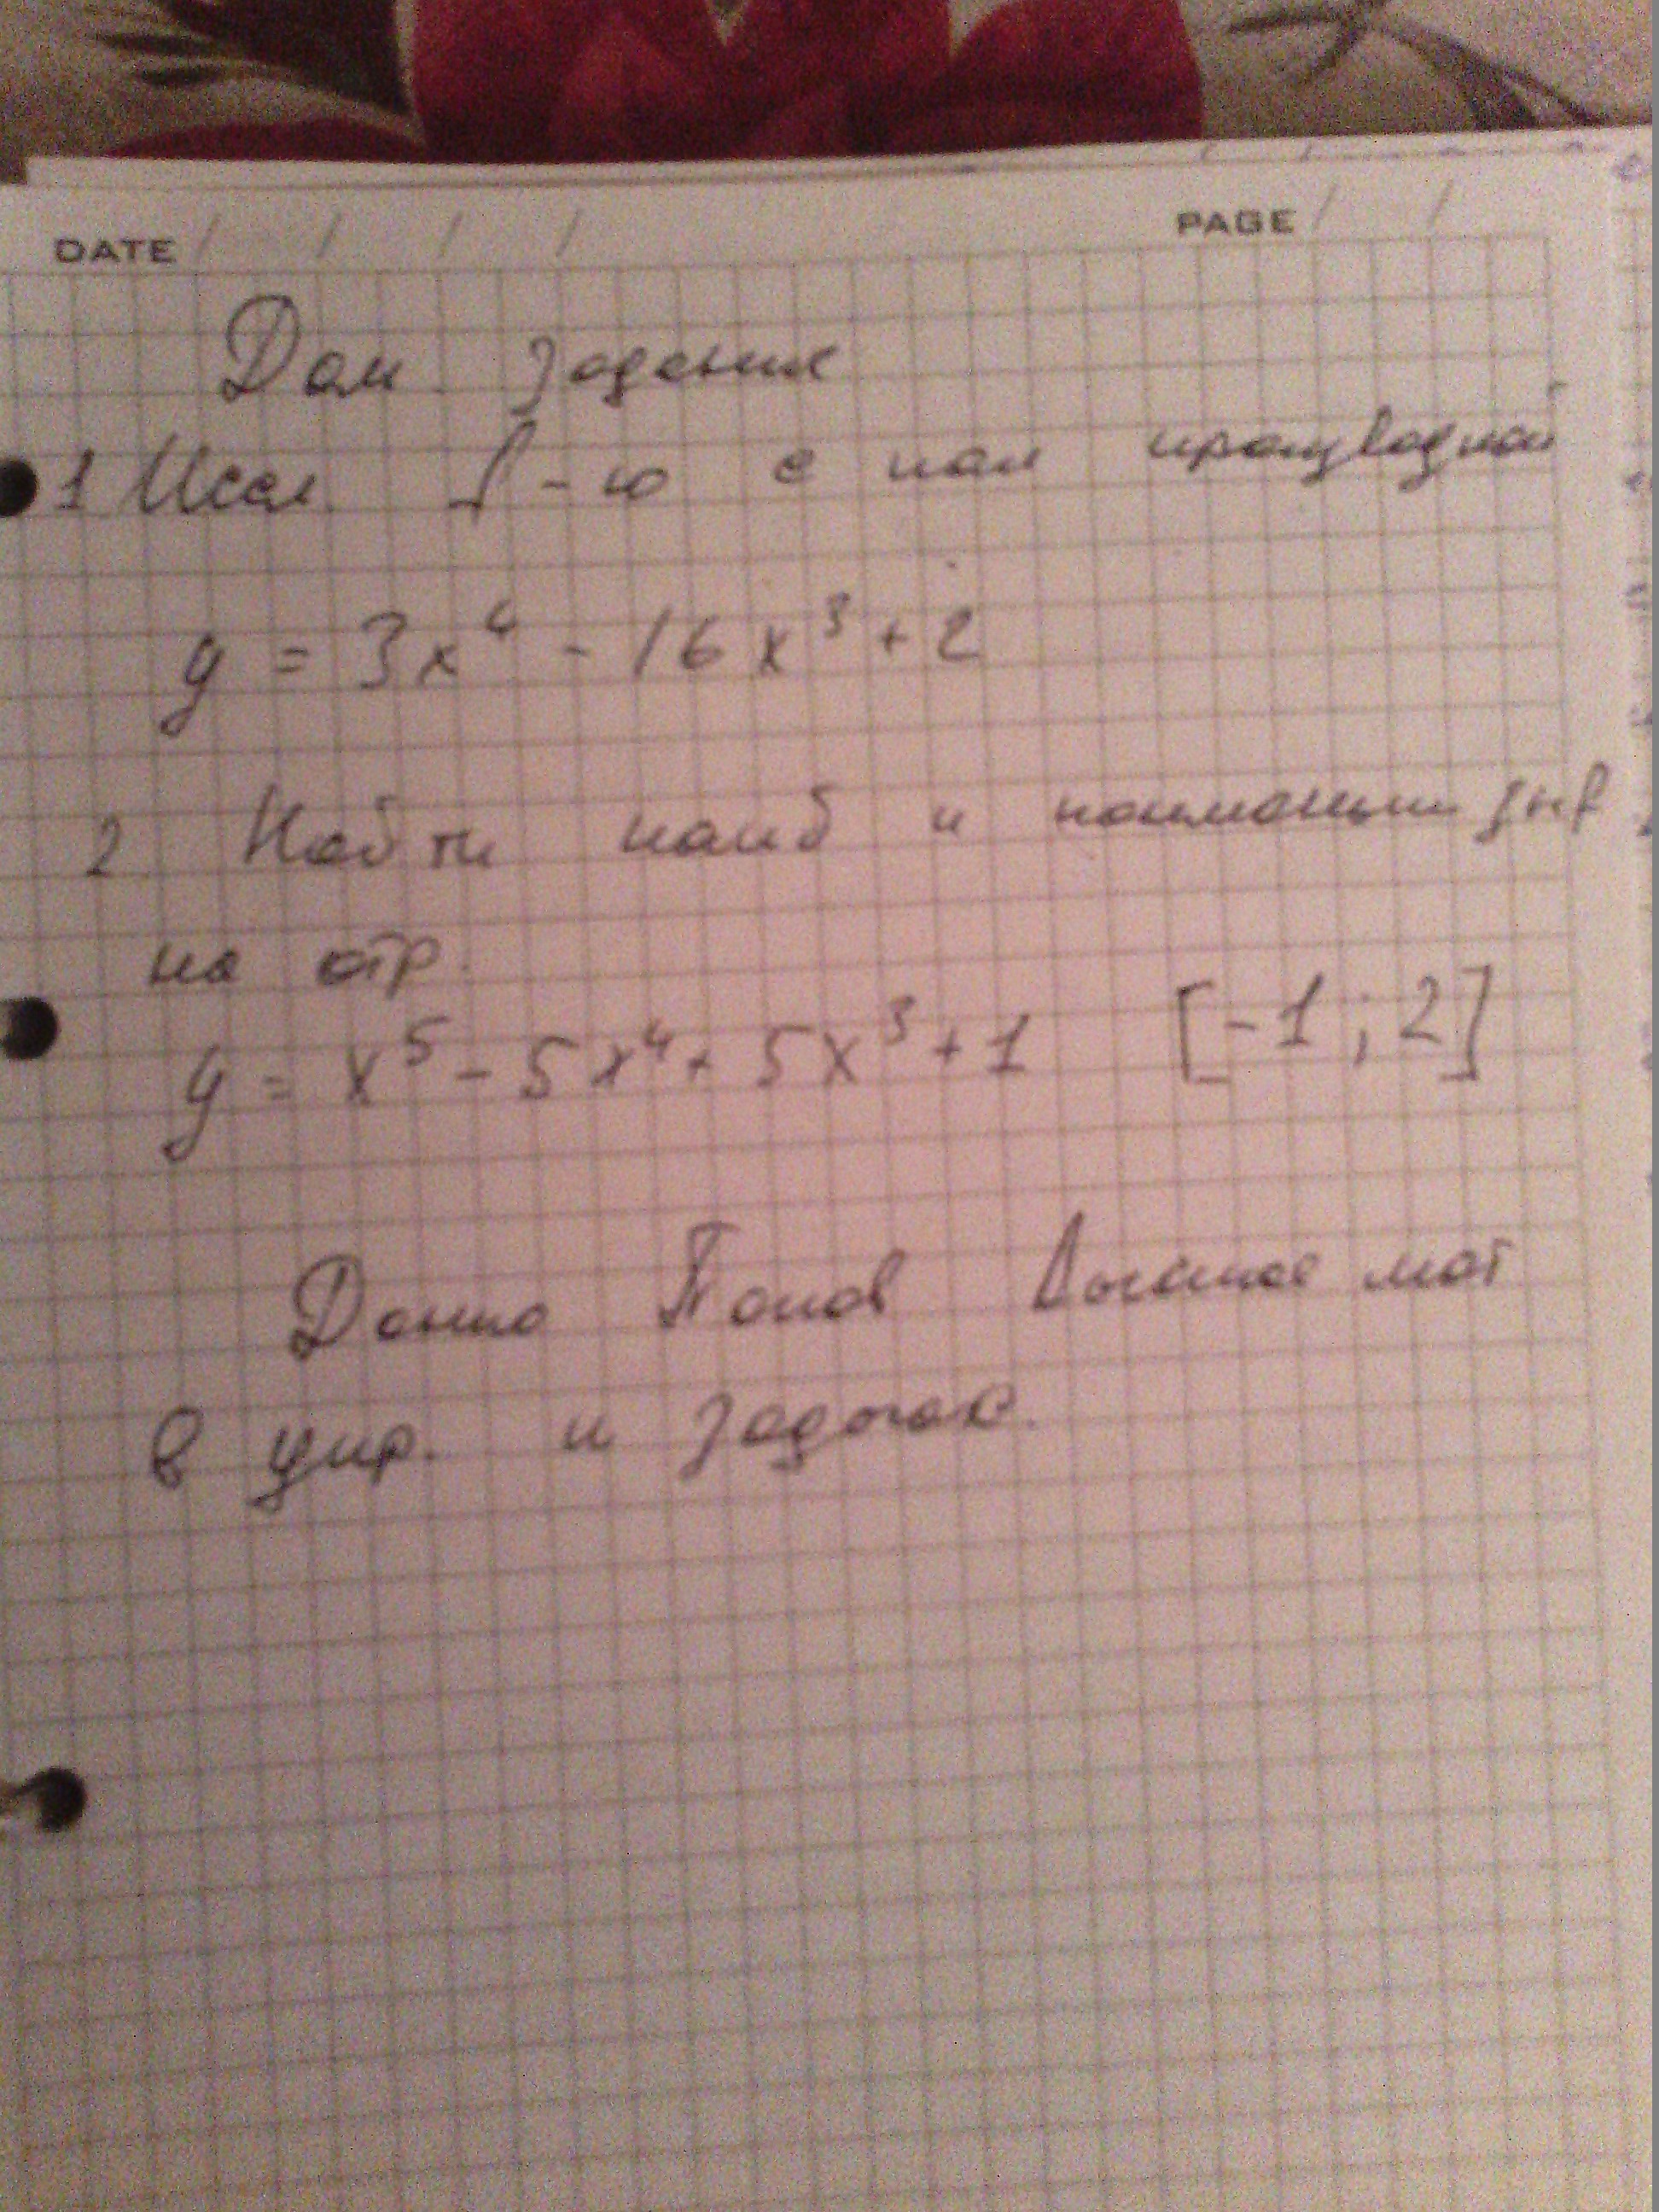 DATE / / / / PAGE / /
Дом. задания
1 Иссл. f-ю с пом производной
y = 3x⁴ - 16x³ + 2
2 Найти наиб и наименьш зн f
на отр.
y = x⁵ - 5x⁴ + 5x³ + 1 [-1; 2]
Данко Попов Высшая мат
в упр. и задачах.